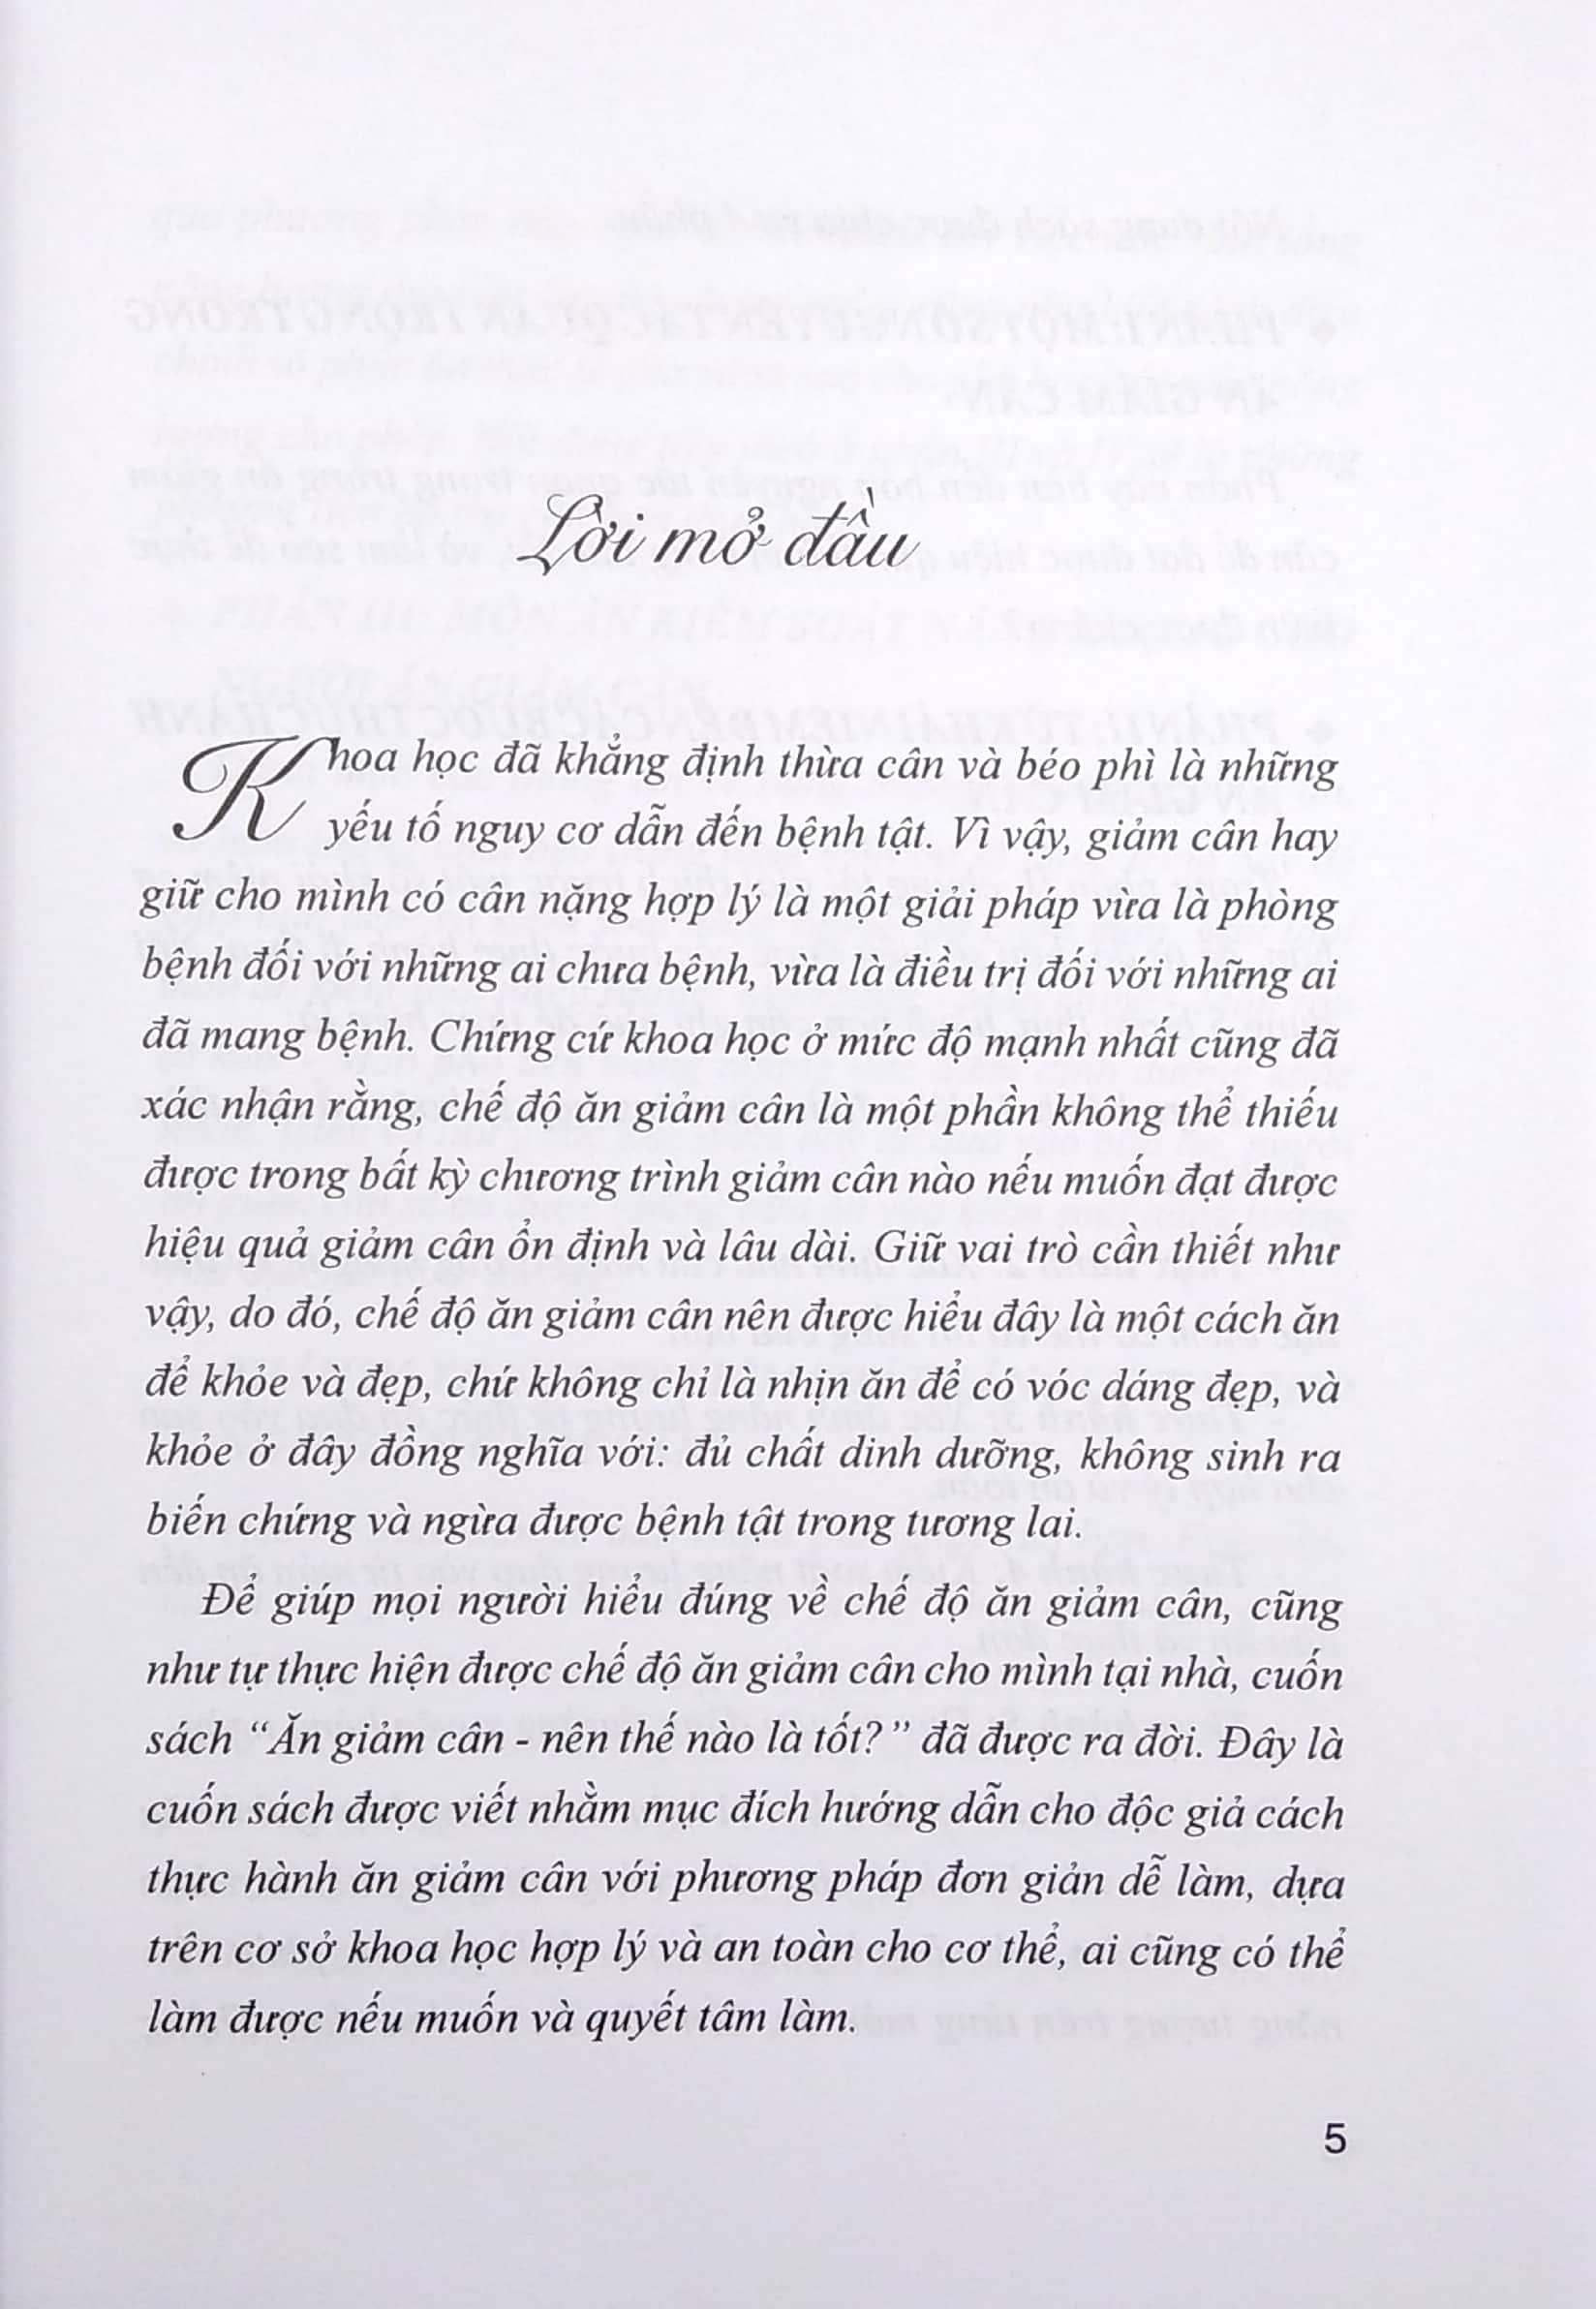 Lời mở đầu
Khoa học đã khẳng định thừa cân và béo phì là những
yếu tố nguy cơ dẫn đến bệnh tật. Vì vậy, giảm cân hay
giữ cho mình có cân nặng hợp lý là một giải pháp vừa là phòng
bệnh đối với những ai chưa bệnh, vừa là điều trị đối với những ai
đã mang bệnh. Chứng cứ khoa học ở mức độ mạnh nhất cũng đã
xác nhận rằng, chế độ ăn giảm cân là một phần không thể thiếu
được trong bất kỳ chương trình giảm cân nào nếu muốn đạt được
hiệu quả giảm cân ổn định và lâu dài. Giữ vai trò cần thiết như
vậy, do đó, chế độ ăn giảm cân nên được hiểu đây là một cách ăn
để khỏe và đẹp, chứ không chỉ là nhịn ăn để có vóc dáng đẹp, và
khỏe ở đây đồng nghĩa với: đủ chất dinh dưỡng, không sinh ra
biến chứng và ngừa được bệnh tật trong tương lai.
Để giúp mọi người hiểu đúng về chế độ ăn giảm cân, cũng
như tự thực hiện được chế độ ăn giảm cân cho mình tại nhà, cuốn
sách “Ăn giảm cân - nên thế nào là tốt?” đã được ra đời. Đây là
cuốn sách được viết nhằm mục đích hướng dẫn cho độc giả cách
thực hành ăn giảm cân với phương pháp đơn giản dễ làm, dựa
trên cơ sở khoa học hợp lý và an toàn cho cơ thể, ai cũng có thể
làm được nếu muốn và quyết tâm làm.
5